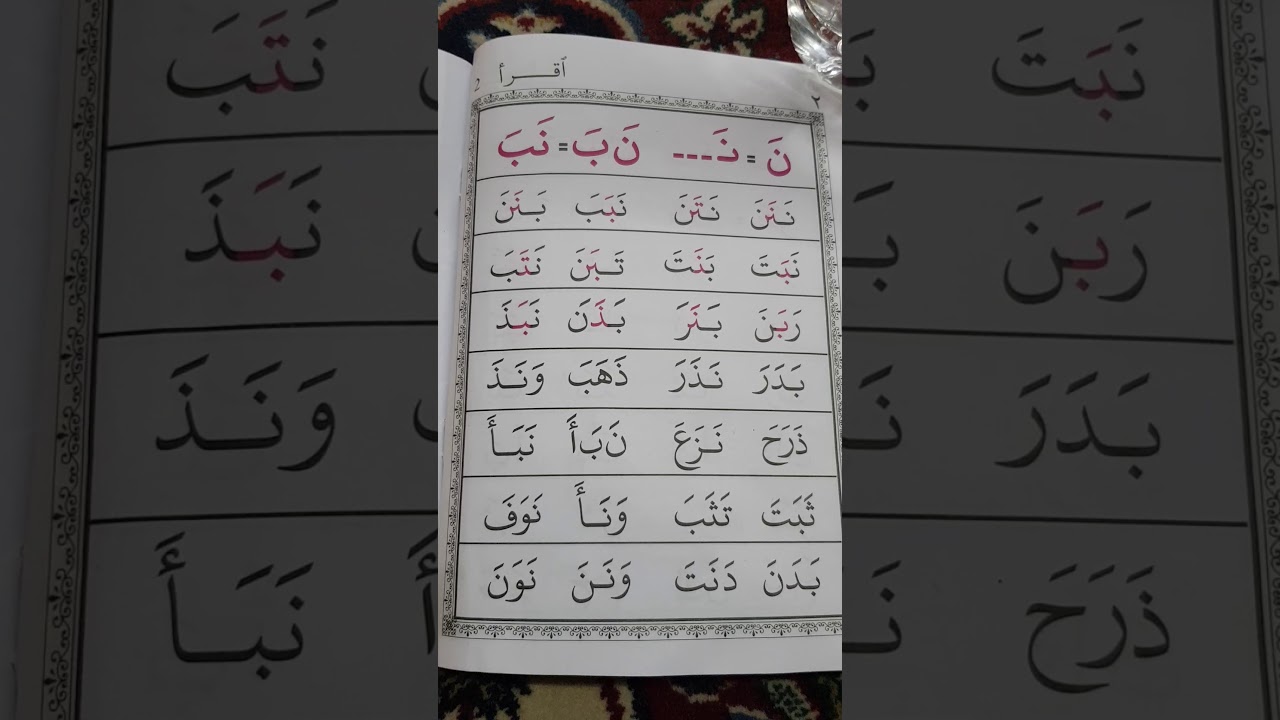 ٢ ٱقـــرأ 2
نَ = نَـ --- نَ بَ = نَبَ
نَنَنَ نَتَنَ نَبَبَ بَنَنَ
نَبَتَ بَنَتَ تَبَنَ نَتَبَ
رَبَنَ بَنَرَ بَذَنَ نَبَذَ
بَدَرَ نَذَرَ ذَهَبَ وَنَذَ
ذَرَحَ نَزَعَ نَبَأَ نَبَأَ
ثَبَتَ تَثَبَ وَنَأَ نَوَفَ
بَدَنَ دَنَتَ وَنَنَ نَوَنَ